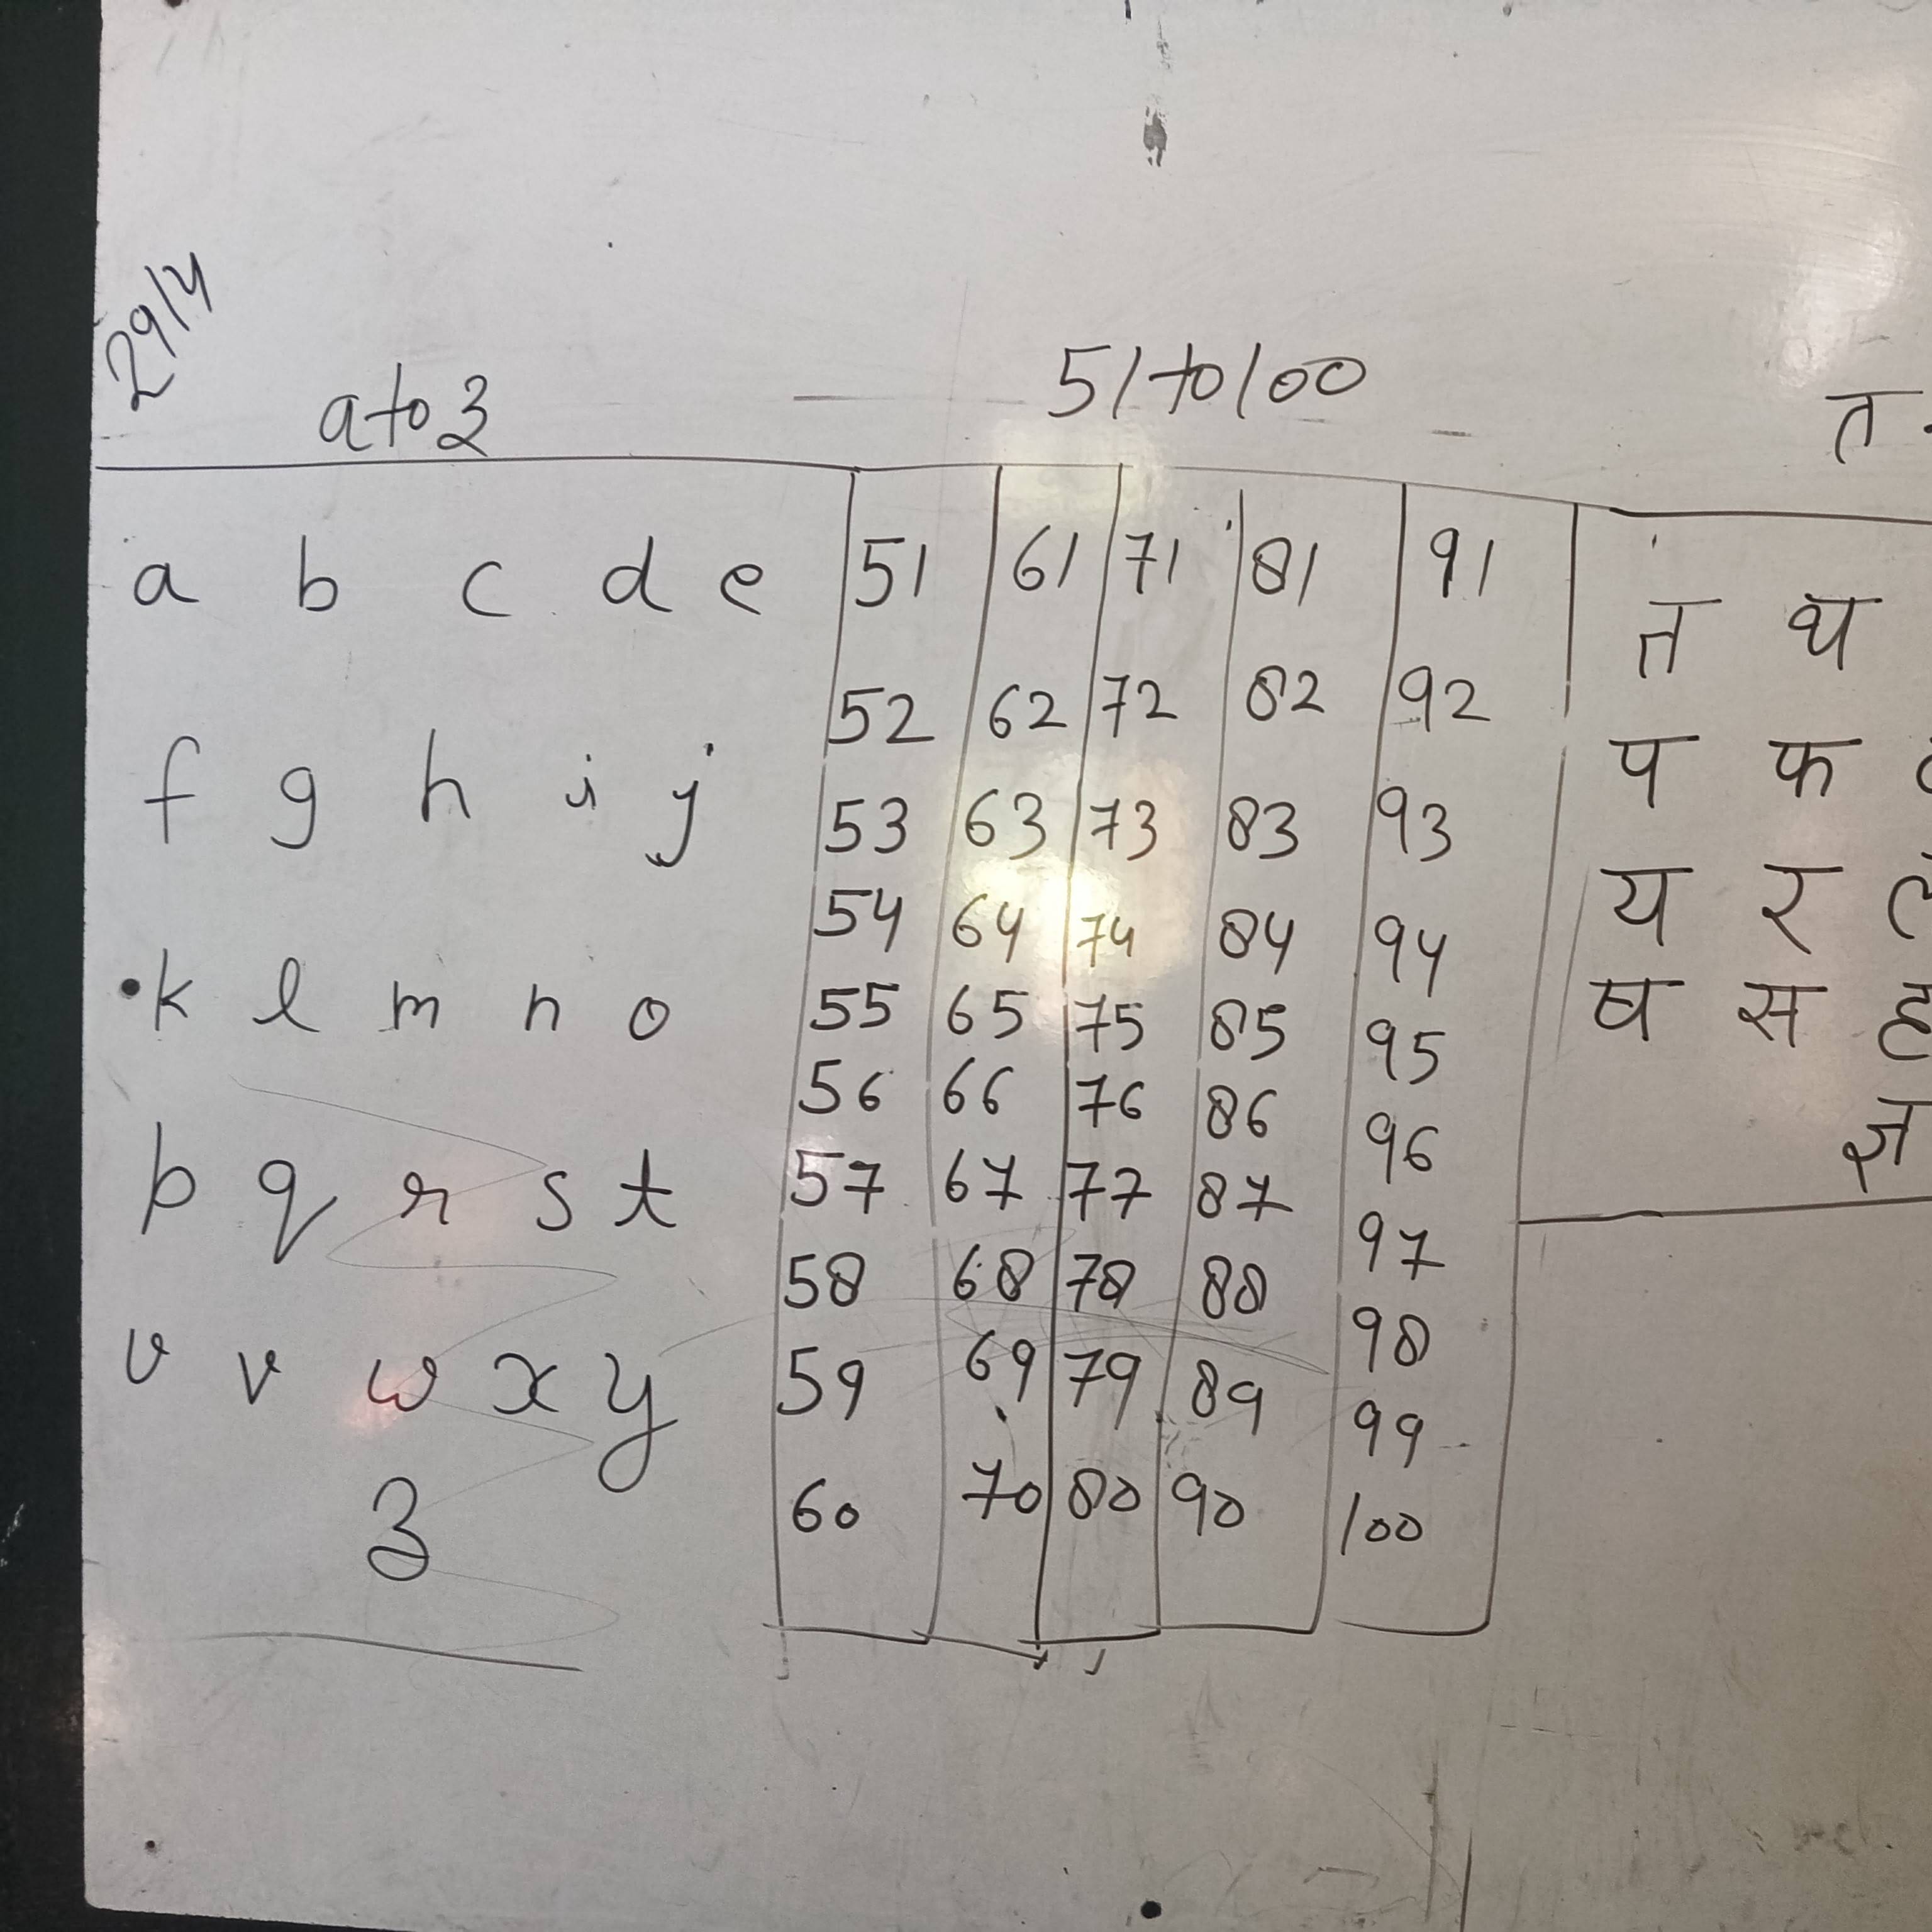 29/4
a to z
51 to 100
त
a b c d e
f g h i j
k l m n o
p q r s t
u v w x y
z
51 61 71 81 91
52 62 72 82 92
53 63 73 83 93
54 64 74 84 94
55 65 75 85 95
56 66 76 86 96
57 67 77 87 97
58 68 78 88 98
59 69 79 89 99
60 70 80 90 100
त थ
प फ
य र
ष स ह
ज्ञ